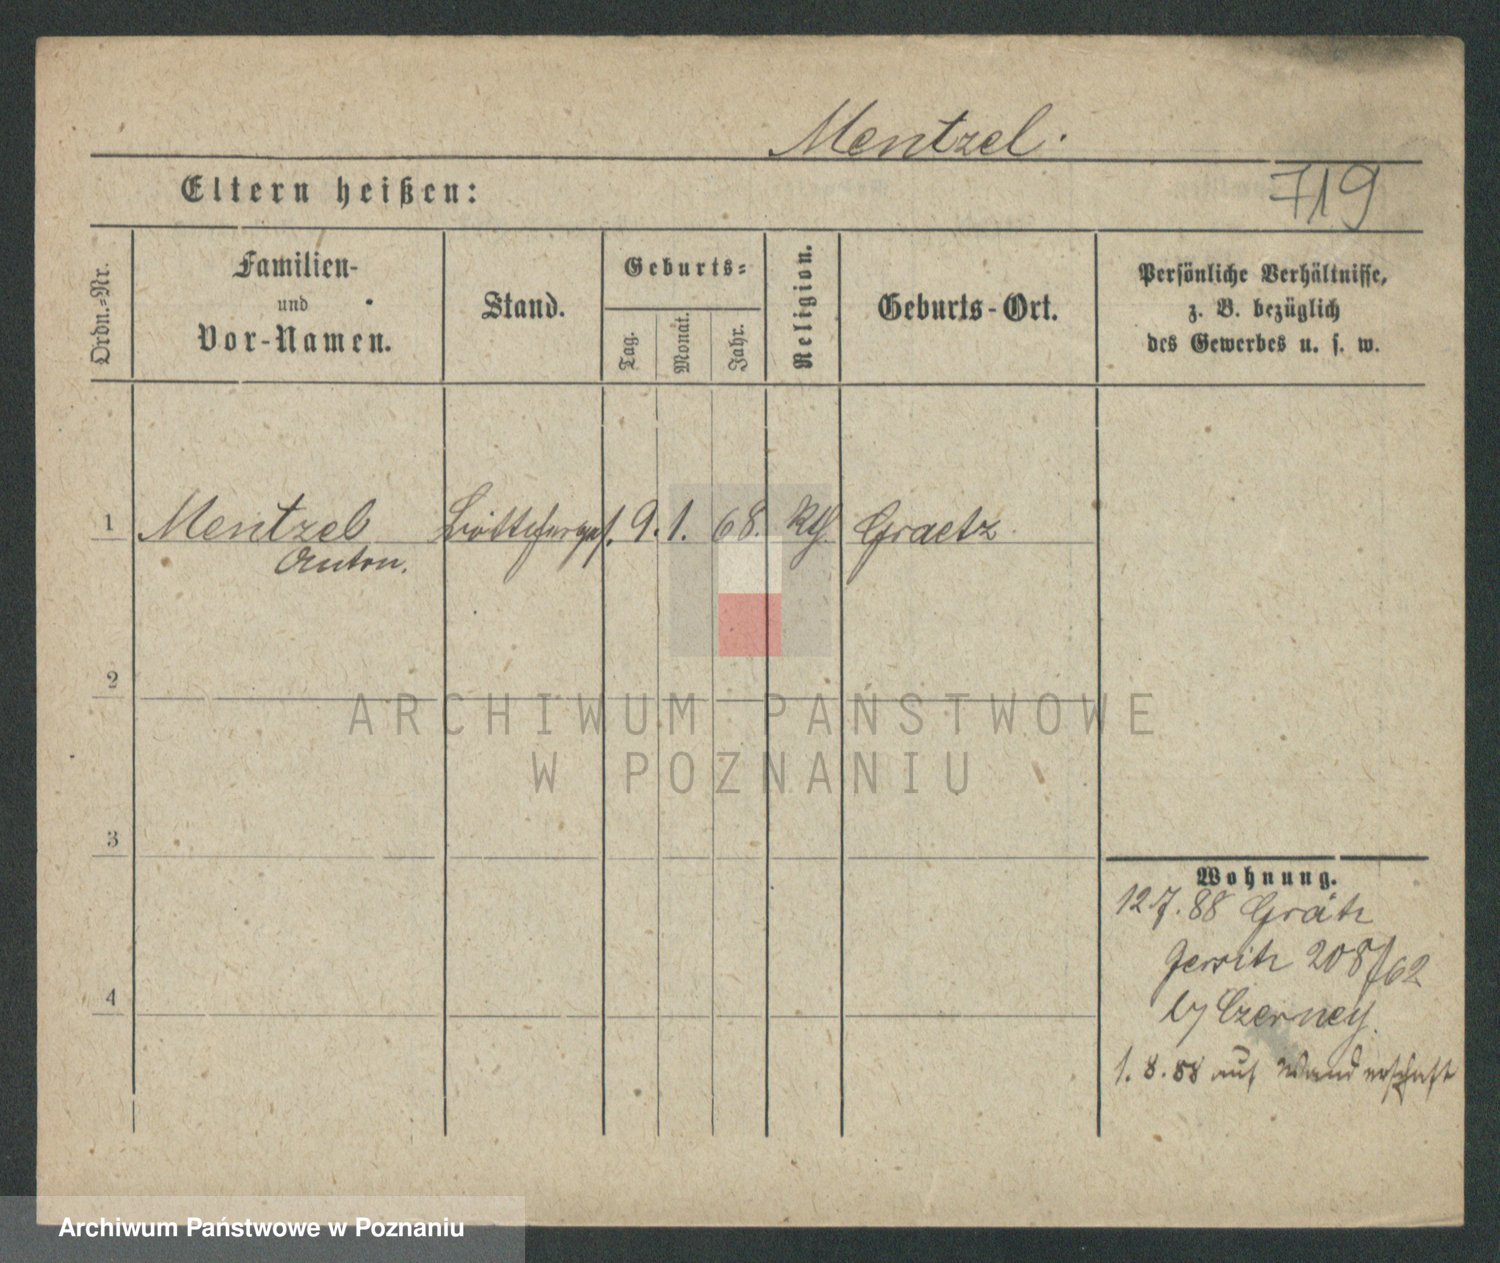 Mentzel.
Eltern heißen:
719
Ordn.-Nr.
Familien-
und
Vor-Namen.
Stand.
Geburts-
Tag.
Monat.
Jahr.
Religion.
Geburts-Ort.
Persönliche Verhältnisse,
z. B. bezüglich
des Gewerbes u. s. w.
1 Mentzel Böttcherges. 9. 1. 68. Kth. Graetz
Anton.
2
ARCHIWUM PAŃSTWOWE
W POZNANIU
3
Wohnung.
12.7.88 Grätz
Jersitz 208/62
b/ Czerney.
4
1.8.88 auf Wanderschaft
Archiwum Państwowe w Poznaniu